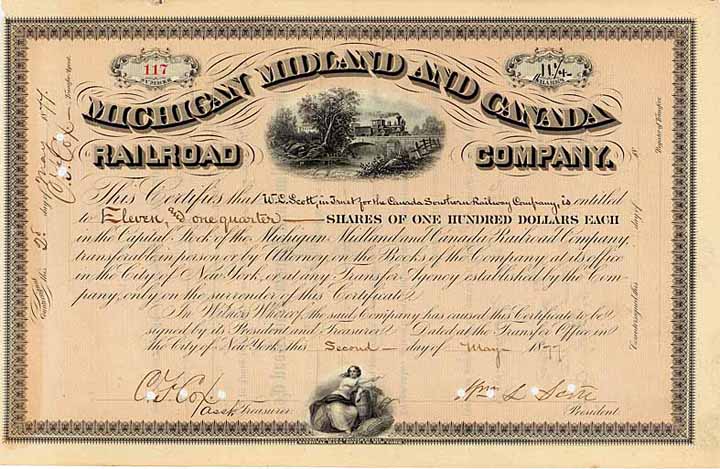 117
NUMBER
11¼
SHARES
MICHIGAN MIDLAND AND CANADA
RAILROAD COMPANY.
This Certifies that W. L. Scott, in Trust for the Canada Southern Railway Company, is entitled
to Eleven, and one quarter SHARES OF ONE HUNDRED DOLLARS EACH
in the Capital Stock of the Michigan Midland and Canada Railroad Company,
transferable in person or by Attorney on the Books of the Company at its office
in the City of New York, or at any Transfer Agency established by the Com-
pany, only on the surrender of this Certificate.
In Witness Whereof, the said Company has caused this Certificate to be
signed by its President and Treasurer. Dated at the Transfer Office, in
the City of New York, this Second day of May 1877
C. F. Cox
Asst Treasurer.
Wm L. Scott
President.
this 2d day of May 1877.
C. F. Cox Transfer Agent.
Countersigned this day of 18
Registrar of Transfers